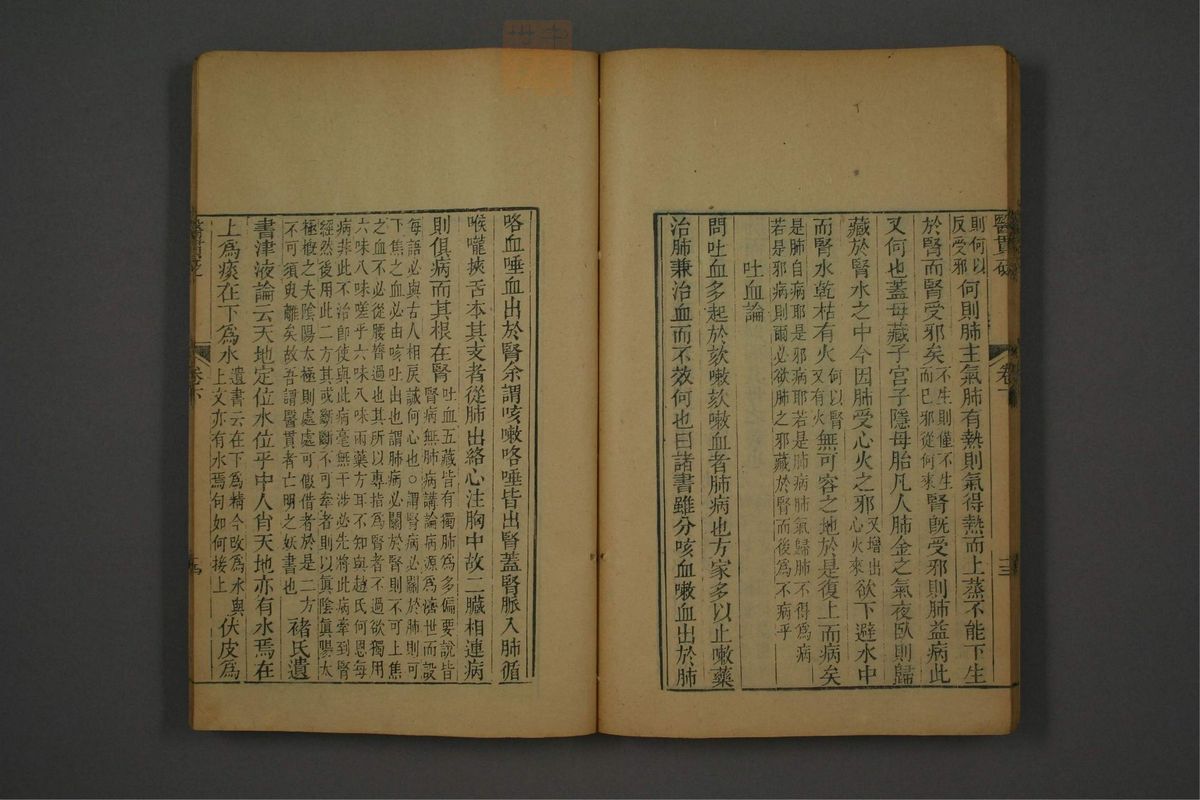 醫貫砭
卷下
則何以反受邪何則肺主氣肺有熱則氣得熱而上蒸不能下生
於腎而腎受邪矣不生則僅不生而已邪從何來腎既受邪則肺益病此
又何也蓋母藏子宮子隱母胎凡人肺金之氣夜臥則歸
藏於腎水之中今因肺受心火之邪又增出心火來欲下避水中
而腎水乾枯有火何以腎又有火無可容之地於是復上而病矣
是肺自病耶是邪病耶若是肺病肺氣歸肺不得為病
若是邪病則爾必欲肺之邪藏於腎而後為不病乎
吐血論
問吐血多起於欬嗽欬嗽血者肺病也方家多以止嗽藥
治肺兼治血而不效何也曰諸書雖分咳血嗽血出於肺
咯血唾血出於腎余謂咳嗽咯唾皆出腎蓋腎脈入肺循
喉嚨挾舌本其支者從肺出絡心注胸中故二臟相連病
則俱病而其根在腎吐血五藏皆有獨肺為多偏要說皆腎病無肺病講論病源為濟世而設
每語必與古人相戾誠何心也○謂腎病必關於肺則可
下焦之血必由咳吐出也謂肺病必關於腎則不可上焦
之血不必從腰膂過也其所以專指為腎者不過欲獨用
六味八味嗟乎六味八味兩藥方耳不知與趙氏何恩每
病非此不治卽使與此病毫無干涉必先將此病牽到腎
經然後用此二方其或斷斷不可牽者則以眞陰眞陽太
極槪之夫陰陽太極則處處可假借者於是二方
不可須臾離矣故吾謂醫貫者亡明之妖書也褚氏遺
書津液論云天地定位水位乎中人肖天地亦有水焉在
上為痰在下為水遺書云在下為精今改為水與上文亦有水焉句如何接上伏皮為
卷下